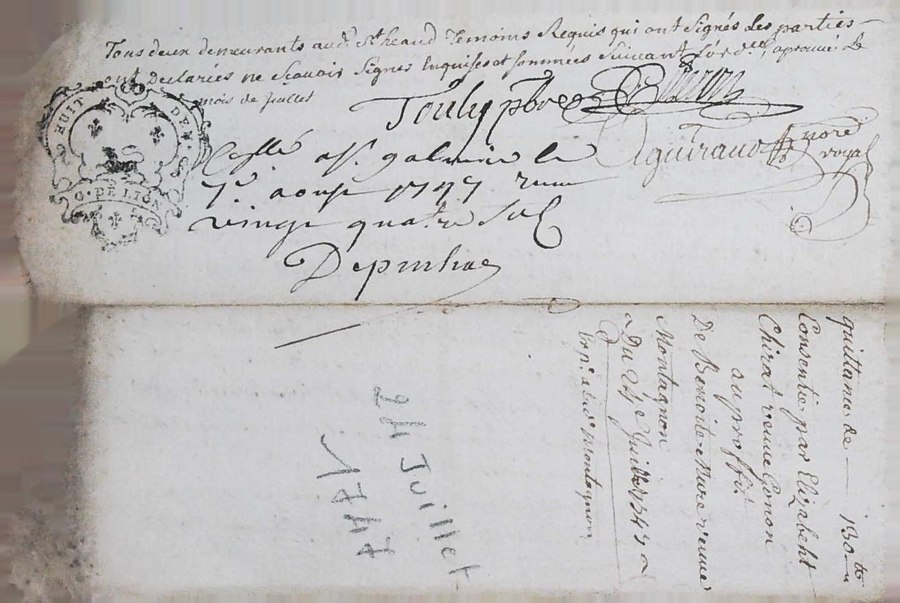 Tous deux demeurants aud. St heand Temoins Requis qui ont signés Les parties
ont Declarées ne sçavoir signer Enquises et sommées suivant L'ord.ce aprouvé Le
mois de Juillet
HUIT DEN.
G. DE LION
Jouly ptbre
Aguiraud nore
royal
Collé a St galmier le
7e aoust 1747 recu
vingt quatre sols
Depinhac
quittance de 130 tt
Consentie par Elizabeht
Chirat veuve Gonon
au proffit
De Benoite Mure veuve
Montagnon
Du 24e Juillet 1747
24 Juillet
1747